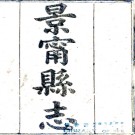 景甯縣志